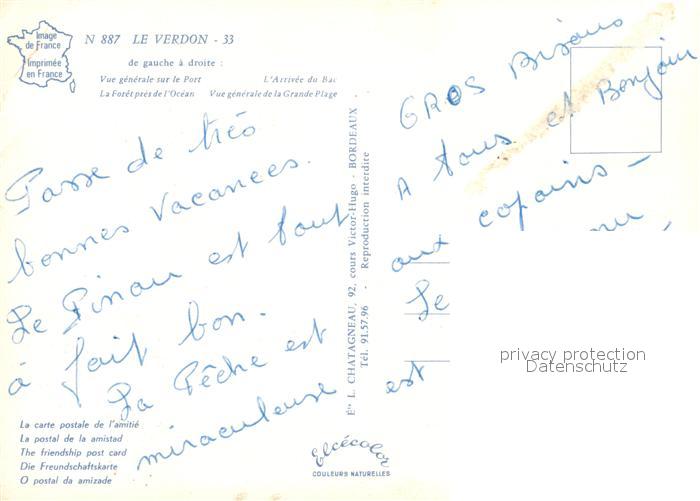 Image
de France
Imprimée
en France
N 887 LE VERDON - 33
de gauche à droite :
Vue générale sur le Port L'Arrivée du Bac
La Forêt près de l'Océan Vue générale de la Grande Plage
Passe de très
bonnes vacances.
Le Pinau est tout
à fait bon.
La Pêche est
miraculeuse
La carte postale de l'amitié
La postal de la amistad
The friendship post card
Die Freundschaftskarte
O postal da amizade
Éts L. CHATAGNEAU, 92, cours Victor-Hugo - BORDEAUX
Tél. 91.57.96 - Reproduction interdite
elcécolor
COULEURS NATURELLES
GROS Bisous
A tous et Bonjour
aux copains -
Le
est
privacy protection
Datenschutz